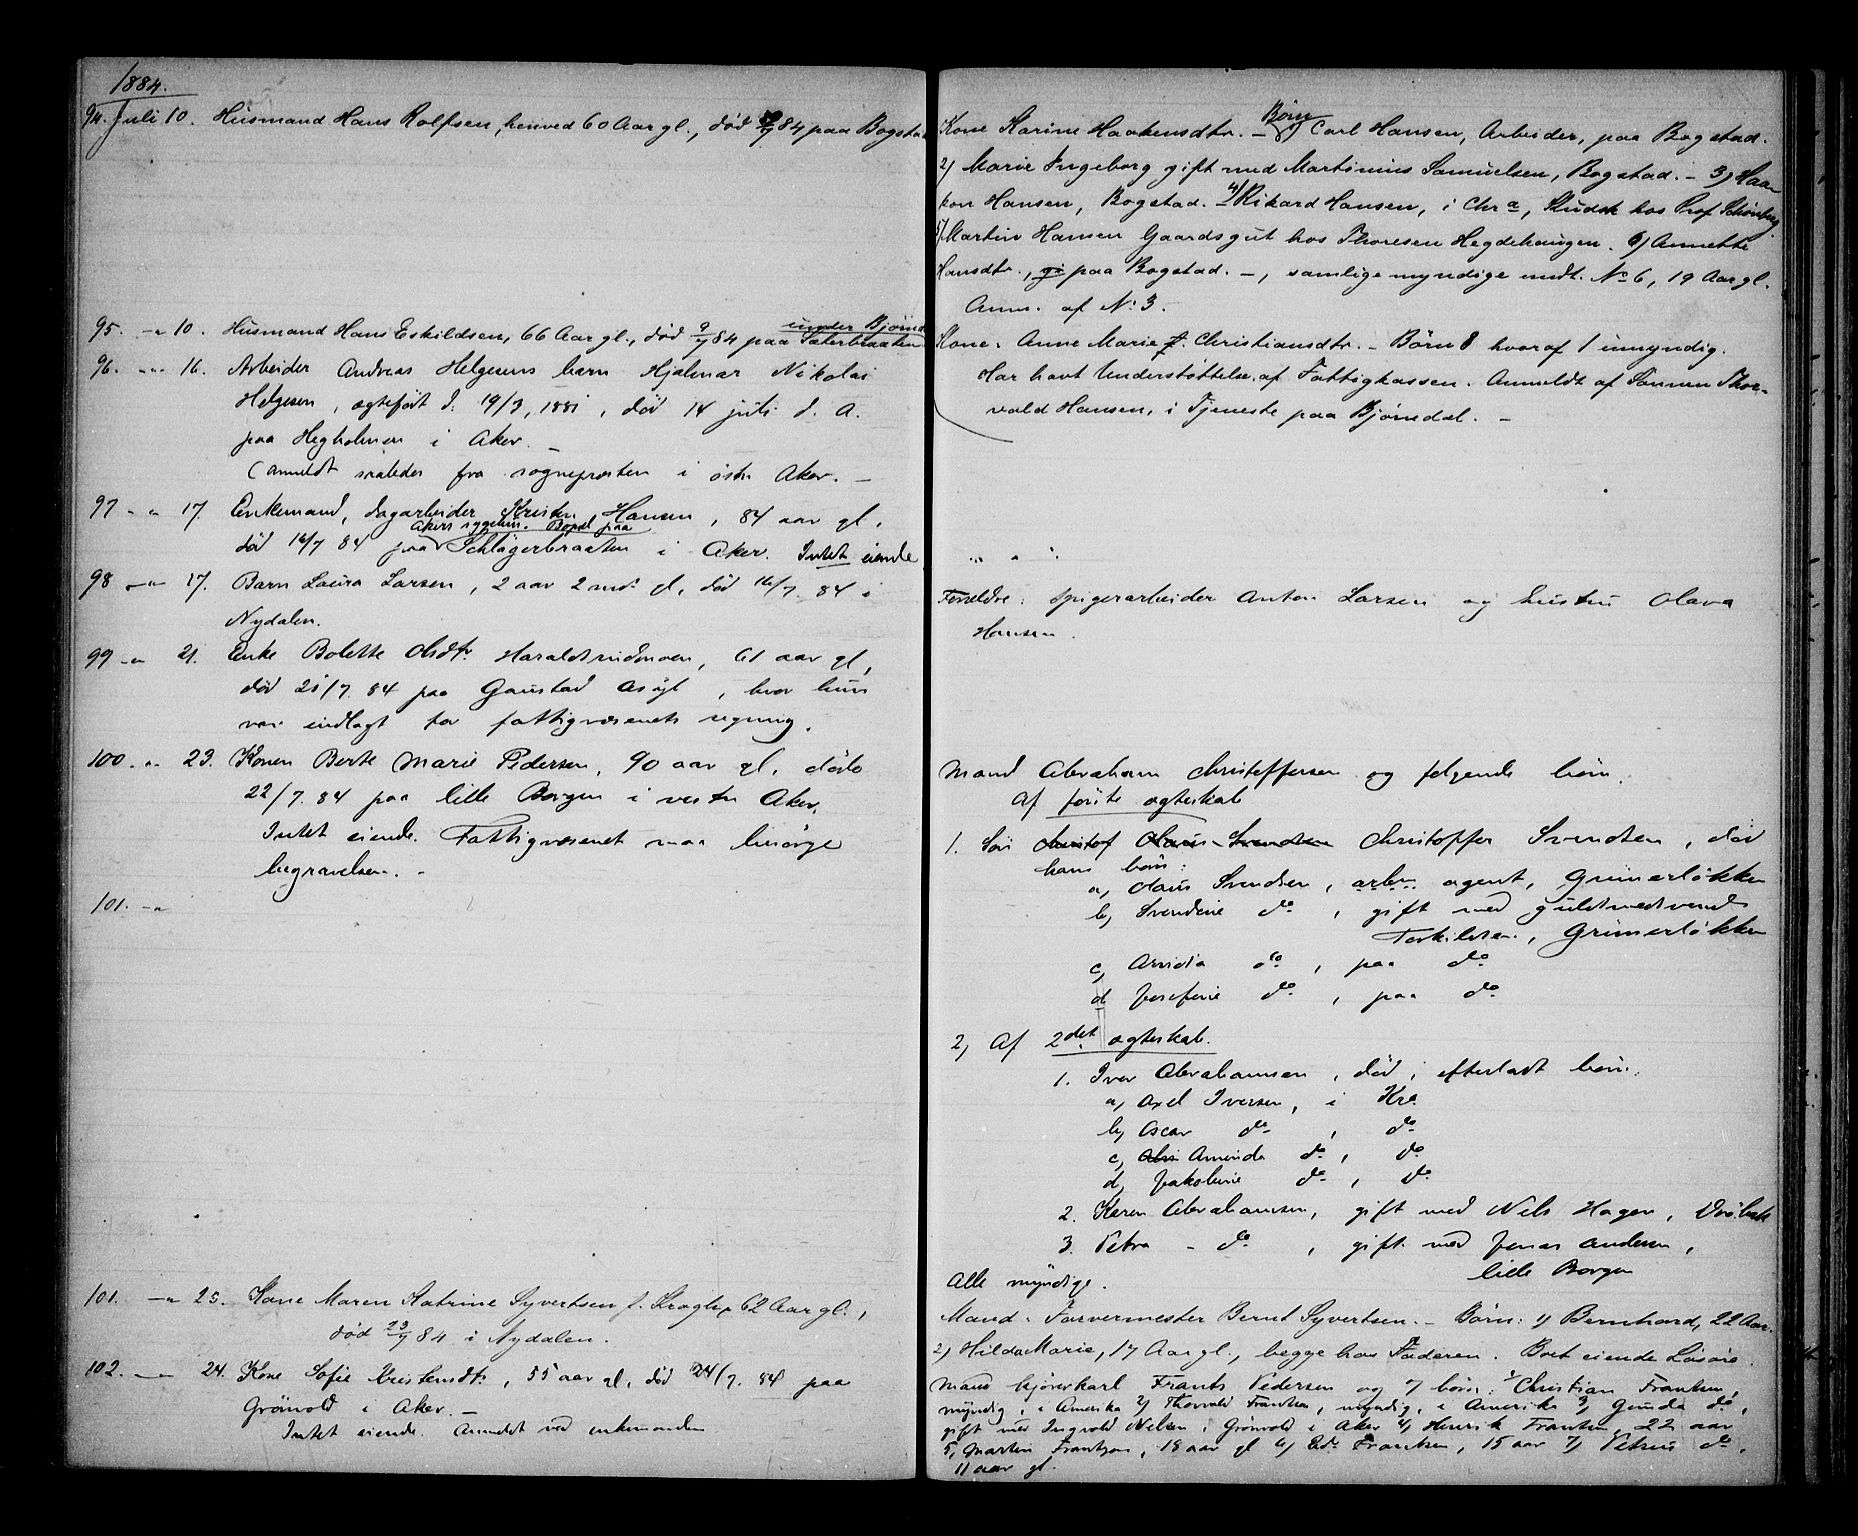 1884.
94. Juli 10. Husmand Hans Rolfsen, henved 60 Aar gl., død 84 paa Bogstad
95. -"- 10. Husmand Hans Eskildsen, 66 Aar gl., død 9/7 84 paa Sæterbraaten
under Bjørnd
96. -"- 16. Arbeider Andreas Helgesens barn Hjalmar Nikolai
Helgesen, ægtefødt d. 19/3, 1881, død 14 juli d. A.
paa Hegholmen i Aker. -
(anmeldt saaledes fra sognepresten i østre Aker. -
97 -"- 17. Enkemand, dagarbeider Kristen Hansen, 84 aar gl.,
Akers sygehus. Bopæl paa
død 16/7 84 paa Schlägerbraaten i Aker. Intet eiende
98 -"- 17. Barn Laura Larsen, 2 aar 2 md. gl, død 16/7. 84 i
Nydalen.
99 -"- 21. Enke Bolette Olsdtr. Haraldsrudmoen, 61 aar gl,
død 21/7. 84 paa Gaustad Asyl, hvor hun
var indlagt for fattigvæsenets regning.
100. -"- 23. Konen Berte Marie Pedersen, 90 aar gl, døde
22/7. 84 paa lille Borgen i vestre Aker.
Intet eiende. Fattigvæsenet maa besørge
begravelsen. -
101. -"-
101. -"- 25. Kone Maren Katrine Syvertsen f. 62 Aar gl.,
død 23/7 84 i Nydalen.
102. -"- 24. Kone Sofie Kristensdtr, 55 aar gl, død 24/7. 84 paa
Grønvold i Aker. -
Intet eiende. Anmeldt ved enkemanden
Kone Karine Haakensdtr. - Børn 1) Carl Hansen, Arbeider, paa Bogstad.
2) Marie Ingeborg gift med Martinius Samuelsen, Bogstad. - 3) Haa-
kon Hansen, Bogstad. - 4) Rikard Hansen, i Chra, Kudsk hos Prof Schønberg
5) Martin Hansen Gaardsgut hos Thoresen Hegdehaugen. 6) Annette
Hansdtr., gi paa Bogstad. -, samtlige myndige undt. No 6, 19 Aar gl.
Anm. af No 3.
Kone: Anne Marie f. Christiansdtr. - Børn 8 hvoraf 1 umyndig.
Har havt Understøttelse af Fattigkassen. Anmeldt af Sønnen Thor-
vald Hansen, i Tjeneste paa Bjørndal. -
" " "
Forældre: Spigerarbeider Anton Larsen og hustru Olava
Hansen.
Mand Abraham Christoffersen og følgende børn.
Af første ægteskab
1. Søn Christof Olaus Svendsen Christoffer Svendsen, død
hans børn:
a, Olaus Svendsen, arbm agent, Grünerløkken
b, Svendine do, gift med guldsmedsvend
Torkildsen, Grünerløkken
c, Arvida do, paa do
d, Josefine do, paa do
2, Af 2det ægteskab.
1. Iver Abrahamsen, død, efterladt børn:
a, Axel Iversen, i Kra
b, Oscar do, do
c, Amunda do, do
d, Jakobine do, do
2. Karen Abrahamsen, gift med Nils Hagen, Drøbak
3. Petra - do, gift med Jonas Andersen,
lille Borgen
Alle myndige.
Mand. Farvermester Bernt Syvertsen. - Børn: 1) Bernhard, 22 Aar.
2) Hilda Marie, 17 Aar gl., begge hos Faderen. Boet eiende Løsøre.
Mand kjørerkarl Frants Pedersen og 7 børn: 1, Christian Frantsen,
myndig, i Amerika 2) Thorvald Frantsen, myndig, i Amerika 3, Gunda do,
gift med Ingvold Nelsen i Grønvold i Aker 4) Henrik Frantsen 22 aar
5, Martin Frantzen, 18 aar gl 6) Frantsen, 15 aar 7) Petrus do,
11 aar gl.